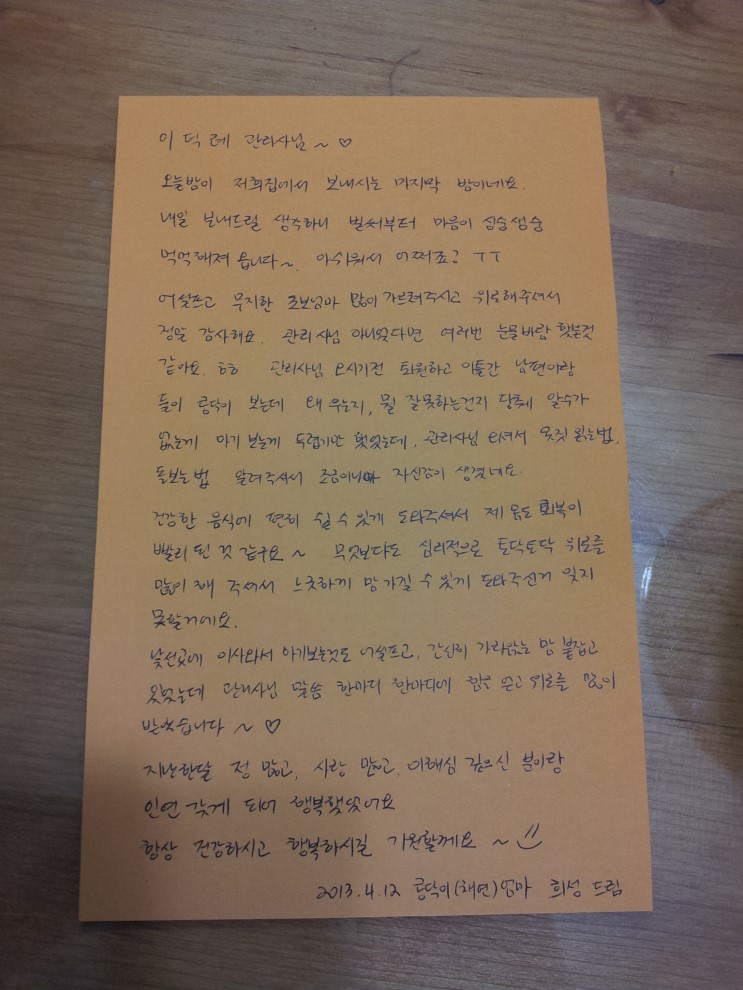 이덕례 관리사님~ ♡
오늘밤이 저희집에서 보내시는 마지막 밤이네요.
내일 보내드릴 생각하니 벌써부터 마음이 싱숭생숭
먹먹해져 옵니다~. 아쉬워서 어쩌죠? ㅜㅜ
어설프고 무지한 초보엄마 많이 가르쳐주시고 위로해주셔서
정말 감사해요. 관리사님 아니였다면 여러번 눈물바람 했을것
같아요. ㅎㅎ 관리사님 오시기전 퇴원하고 이틀간 남편이랑
둘이 콩닥이 보는데 왜 우는지, 뭘 잘못하는건지 당췌 알수가
없는게 아기 보는게 두렵기만 했었는데, 관리사님 오셔서 젖 물리는법,
돌보는법 알려주셔서 조금이나마 자신감이 생겼네요.
건강한 음식에 편히 쉴 수 있게 도와주셔서 제 몸도 회복이
빨리 된 것 같구요~ 무엇보다도 심리적으로 토닥토닥 위로를
많이 해 주셔서 느긋하게 맘 가질 수 있게 도와주신거 잊지
못할거에요.
낯선곳에 이사와서 아기보는것도 어설프고, 간신히 가라앉는 맘 붙잡고
있었는데 관리사님 말씀 한마디 한마디에 힘을 얻고 위로를 많이
받았습니다~ ♡
지난한달 정 많고, 사랑 많고, 이해심 깊으신 분이랑
인연 갖게 되어 행복했었어요
항상 건강하시고 행복하시길 기원할께요 ~
2013.4.12 콩닥이(채연)엄마 희성 드림